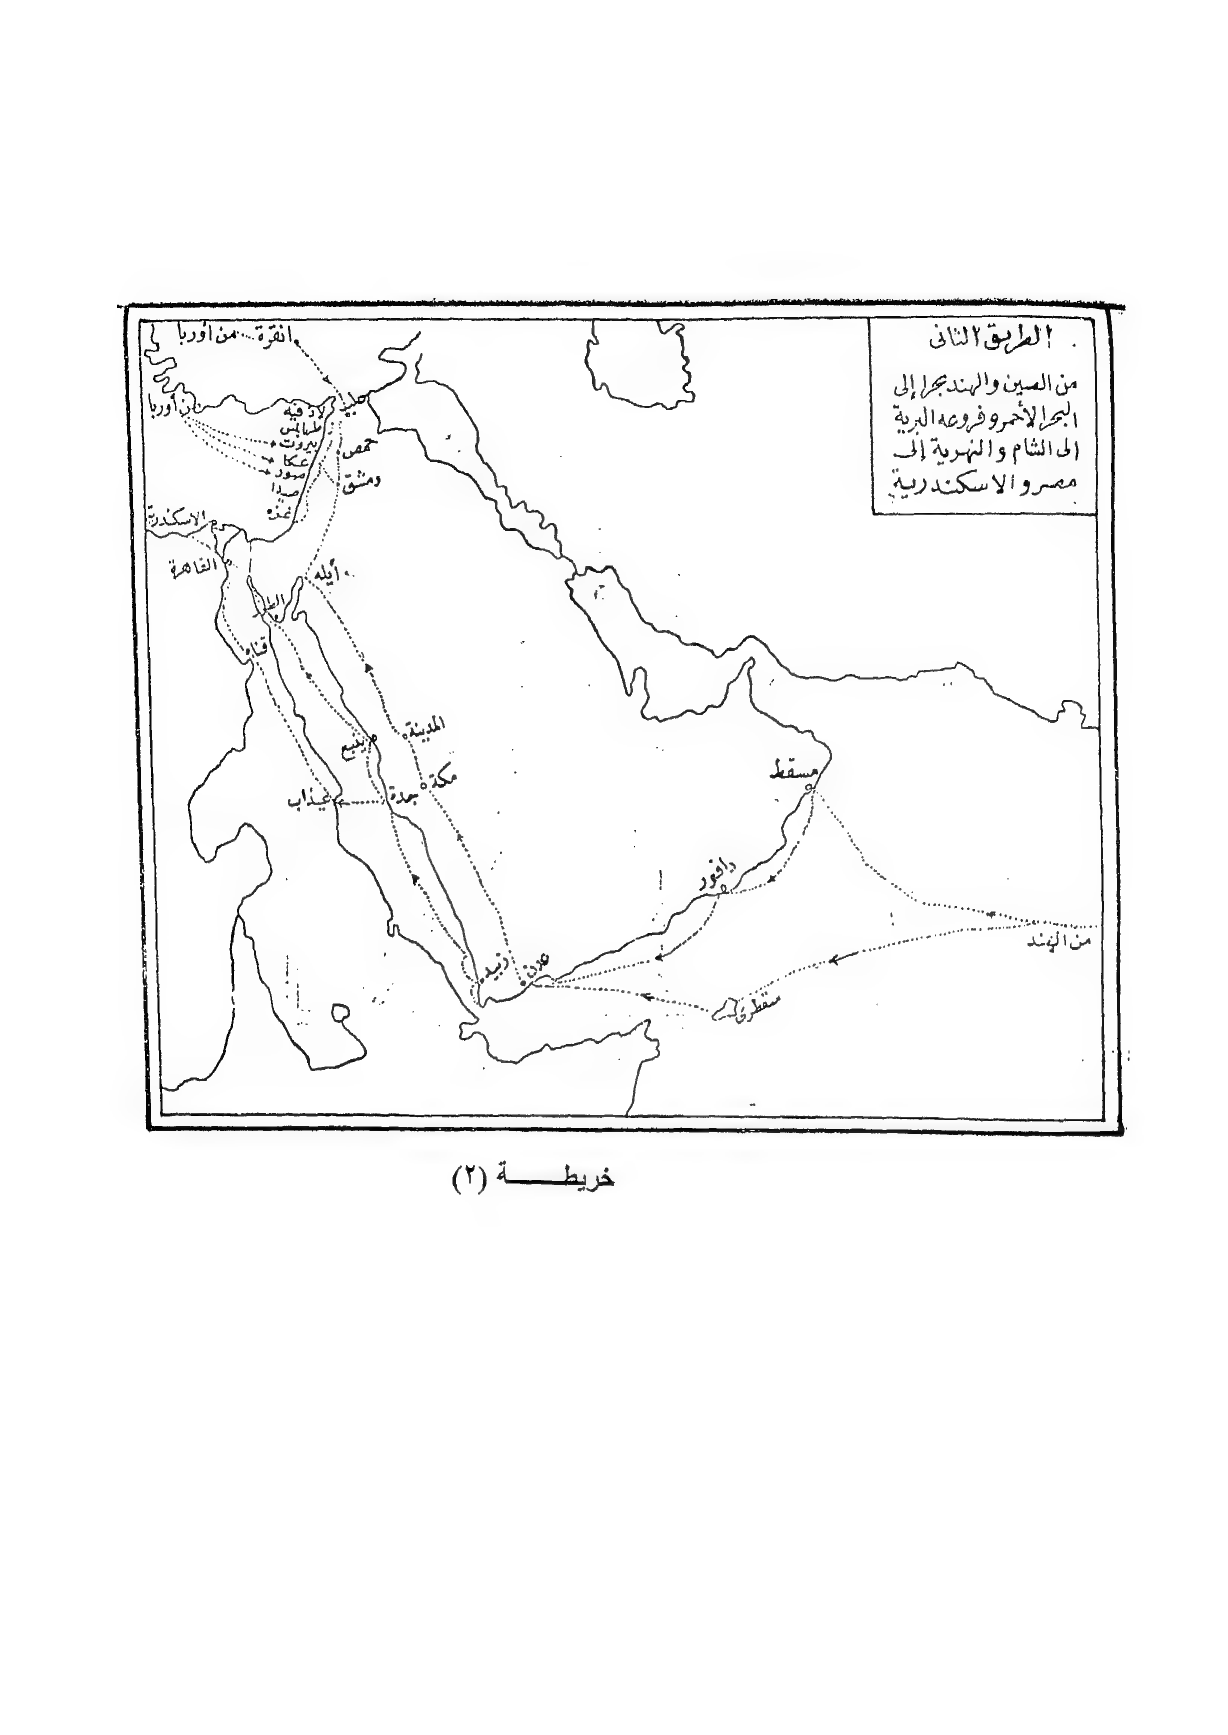 الطريق الثانى
من الصين والهند بحرا إلى
البحر الأحمر و فروعه البرية
إلى الشام والنهرية إلى
مصر و الاسكندرية
انقرة
من أوربا
حلب
من أوربا
لاذقيه
طرابلس
بيروت
عكا
صور
صيدا
غزه
حمص
دمشق
الاسكندرية
القاهرة
أيله
الطور
قناه
المدينة
ينبع
مكة
جدة
عيذاب
مسقط
من الهند
سقطرى
عدن
زبيد
خريطـــــة (٢)